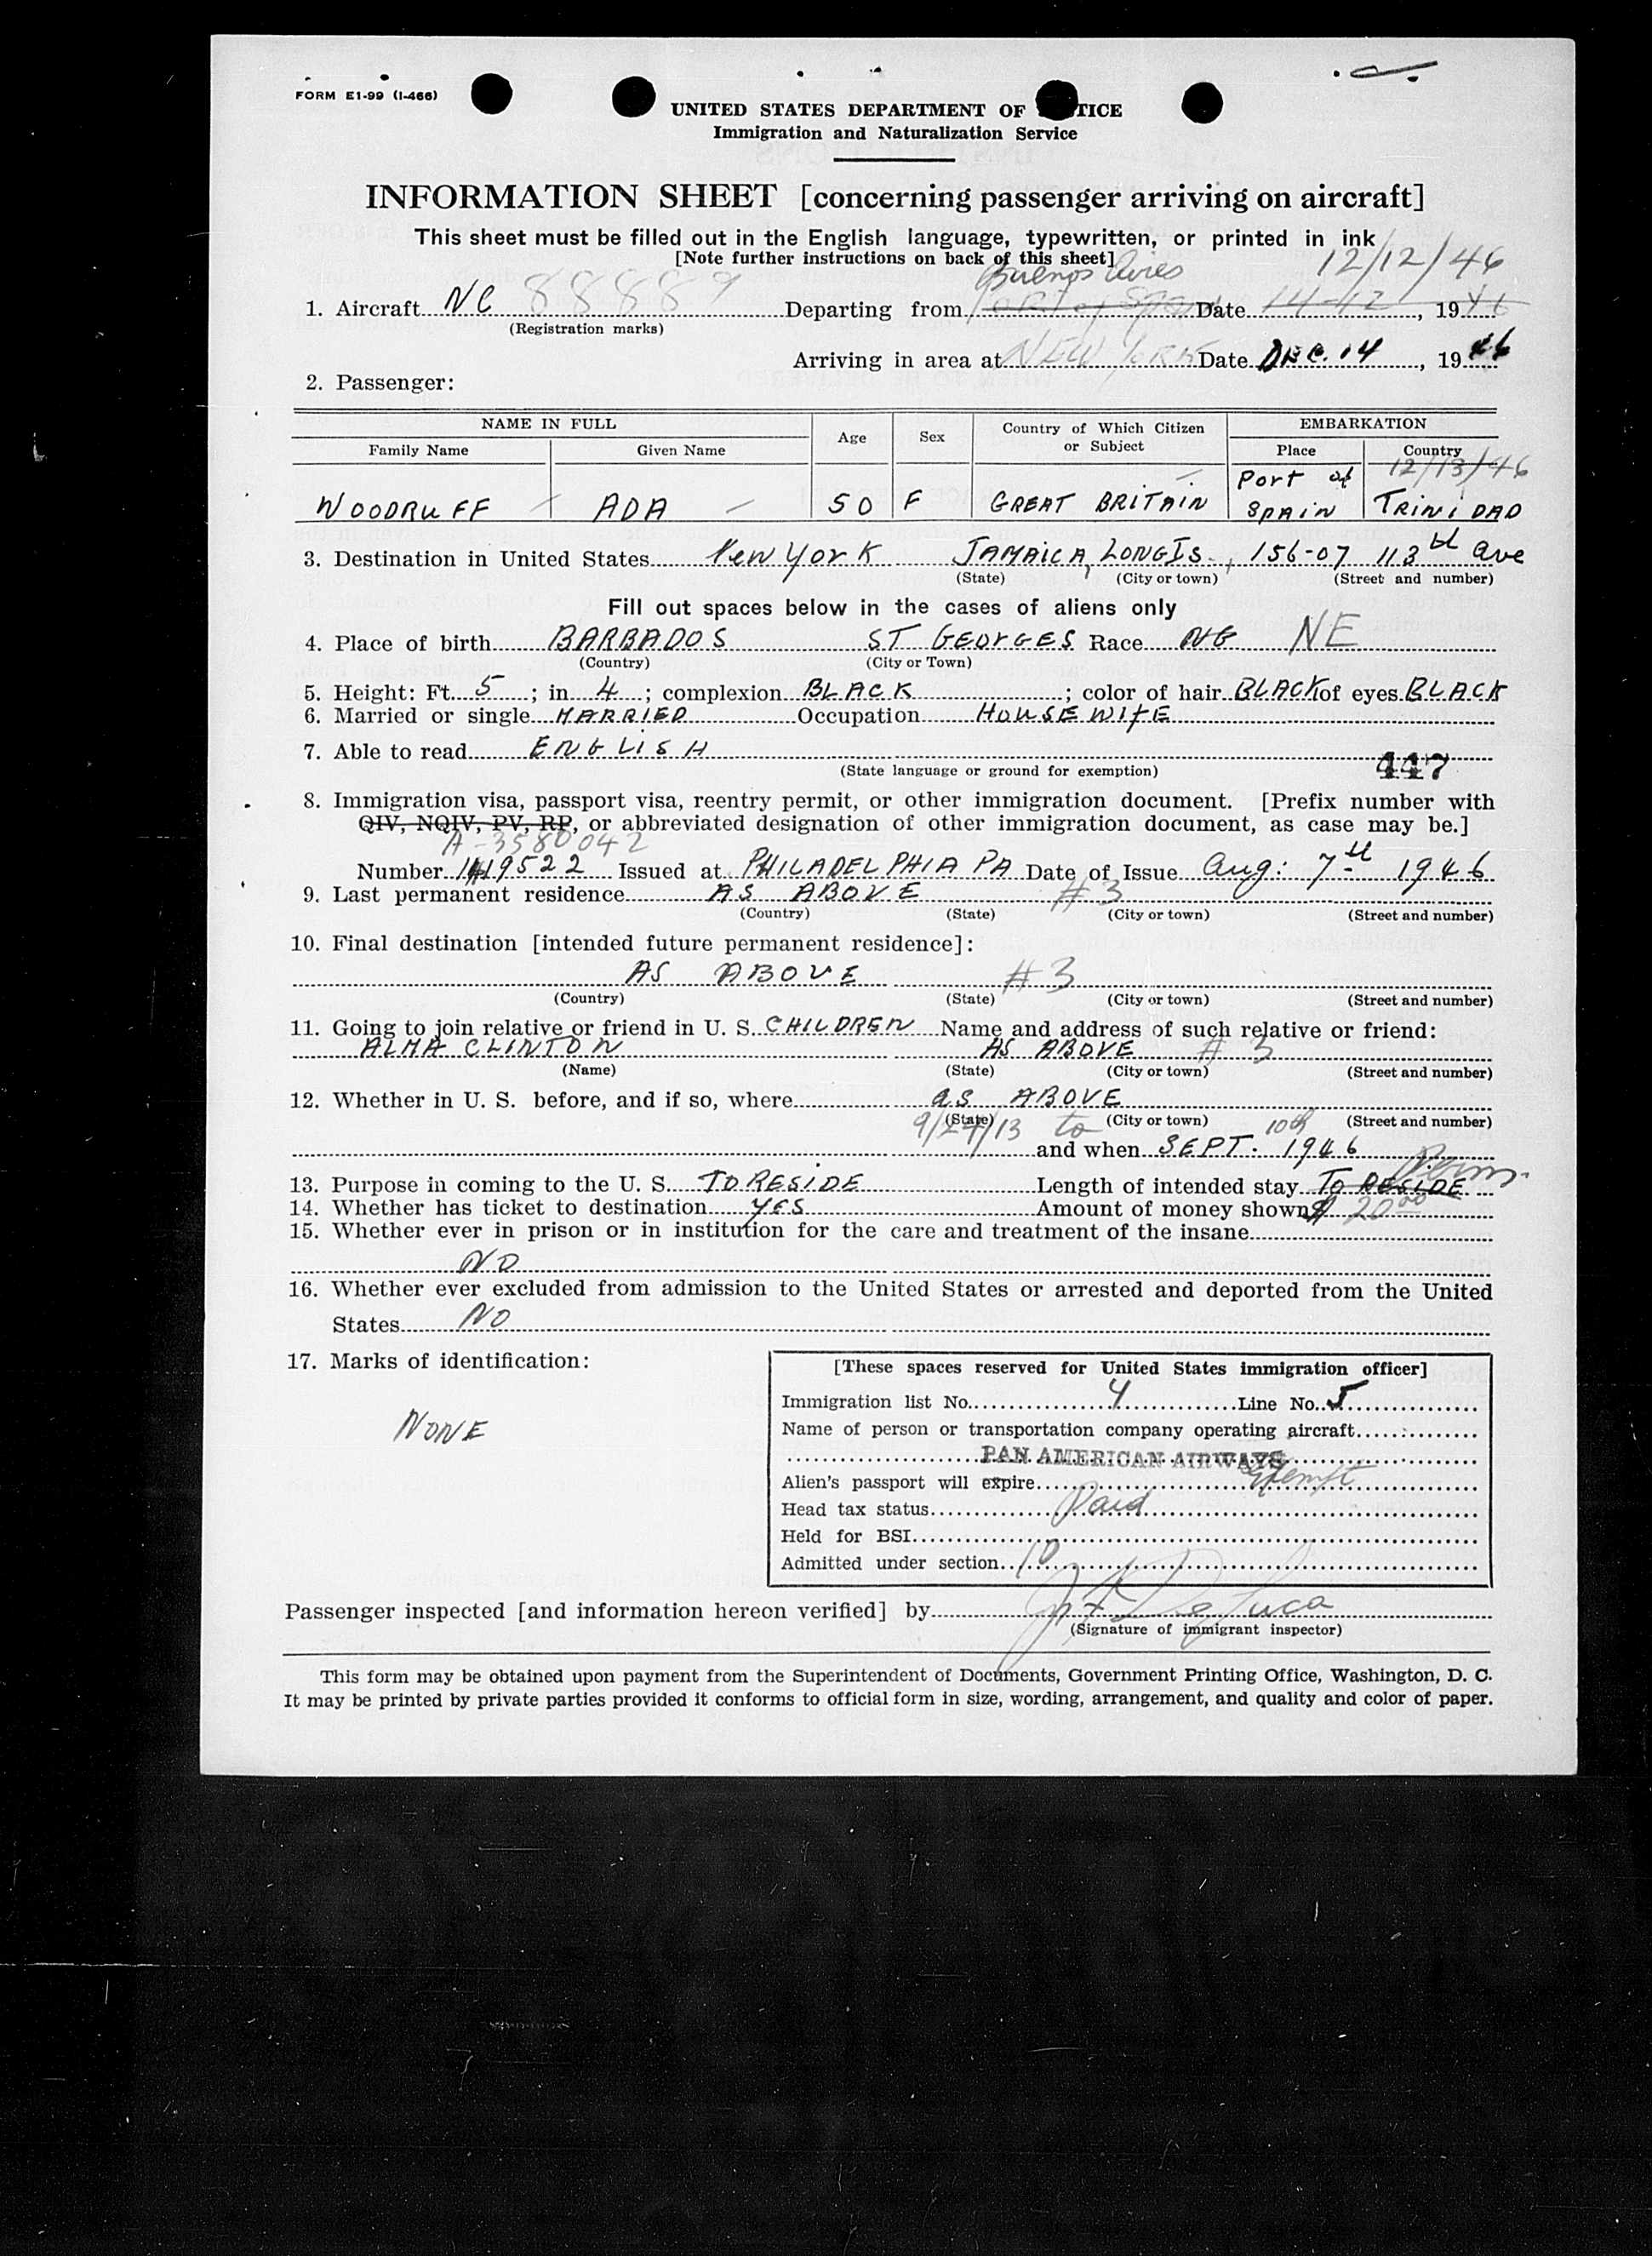 FORM E1-99 (I-466)
UNITED STATES DEPARTMENT OF TICE
Immigration and Naturalization Service
INFORMATION SHEET [concerning passenger arriving on aircraft]
This sheet must be filled out in the English language, typewritten, or printed in ink
[Note further instructions on back of this sheet]
Buenos Aires 12/12/46
1. Aircraft NC 88889 Departing from Port of Spain Date 14-12, 1946
(Registration marks)
Arriving in area at NEW YORK Date DEC. 14, 1946
2. Passenger:
NAME IN FULL Age Sex Country of Which Citizen or Subject EMBARKATION
Family Name Given Name Place Country
12/13/46
WOODRUFF ADA 50 F GREAT BRITAIN Port of SPAIN TRINIDAD
3. Destination in United States New York JAMAICA, LONG IS., 156-07 113th ave
(State) (City or town) (Street and number)
Fill out spaces below in the cases of aliens only
4. Place of birth BARBADOS ST GEORGES Race NG NE
(Country) (City or Town)
5. Height: Ft. 5; in 4; complexion BLACK; color of hair BLACK of eyes BLACK
6. Married or single MARRIED Occupation HOUSEWIFE
7. Able to read ENGLISH
(State language or ground for exemption) 447
8. Immigration visa, passport visa, reentry permit, or other immigration document. [Prefix number with
QIV, NQIV, PV, RP, or abbreviated designation of other immigration document, as case may be.]
A-3580042
Number 1119522 Issued at PHILADELPHIA PA Date of Issue Aug: 7th 1946
9. Last permanent residence AS ABOVE #3
(Country) (State) (City or town) (Street and number)
10. Final destination [intended future permanent residence]:
AS ABOVE #3
(Country) (State) (City or town) (Street and number)
11. Going to join relative or friend in U. S. CHILDREN Name and address of such relative or friend:
ALMA CLINTON AS ABOVE # 3
(Name) (State) (City or town) (Street and number)
12. Whether in U. S. before, and if so, where as ABOVE
(State) (City or town) (Street and number)
9/24/13 to 10th
and when SEPT. 1946
Perm.
13. Purpose in coming to the U. S. TO RESIDE Length of intended stay TO RESIDE
14. Whether has ticket to destination YES Amount of money shown $ 20.00
15. Whether ever in prison or in institution for the care and treatment of the insane
NO
16. Whether ever excluded from admission to the United States or arrested and deported from the United
States NO
17. Marks of identification:
NONE
[These spaces reserved for United States immigration officer]
Immigration list No. 4 Line No. 5
Name of person or transportation company operating aircraft
PAN AMERICAN AIRWAYS
Alien's passport will expire Exempt
Head tax status Paid
Held for BSI
Admitted under section 10
Passenger inspected [and information hereon verified] by De Luca
(Signature of immigrant inspector)
This form may be obtained upon payment from the Superintendent of Documents, Government Printing Office, Washington, D. C.
It may be printed by private parties provided it conforms to official form in size, wording, arrangement, and quality and color of paper.